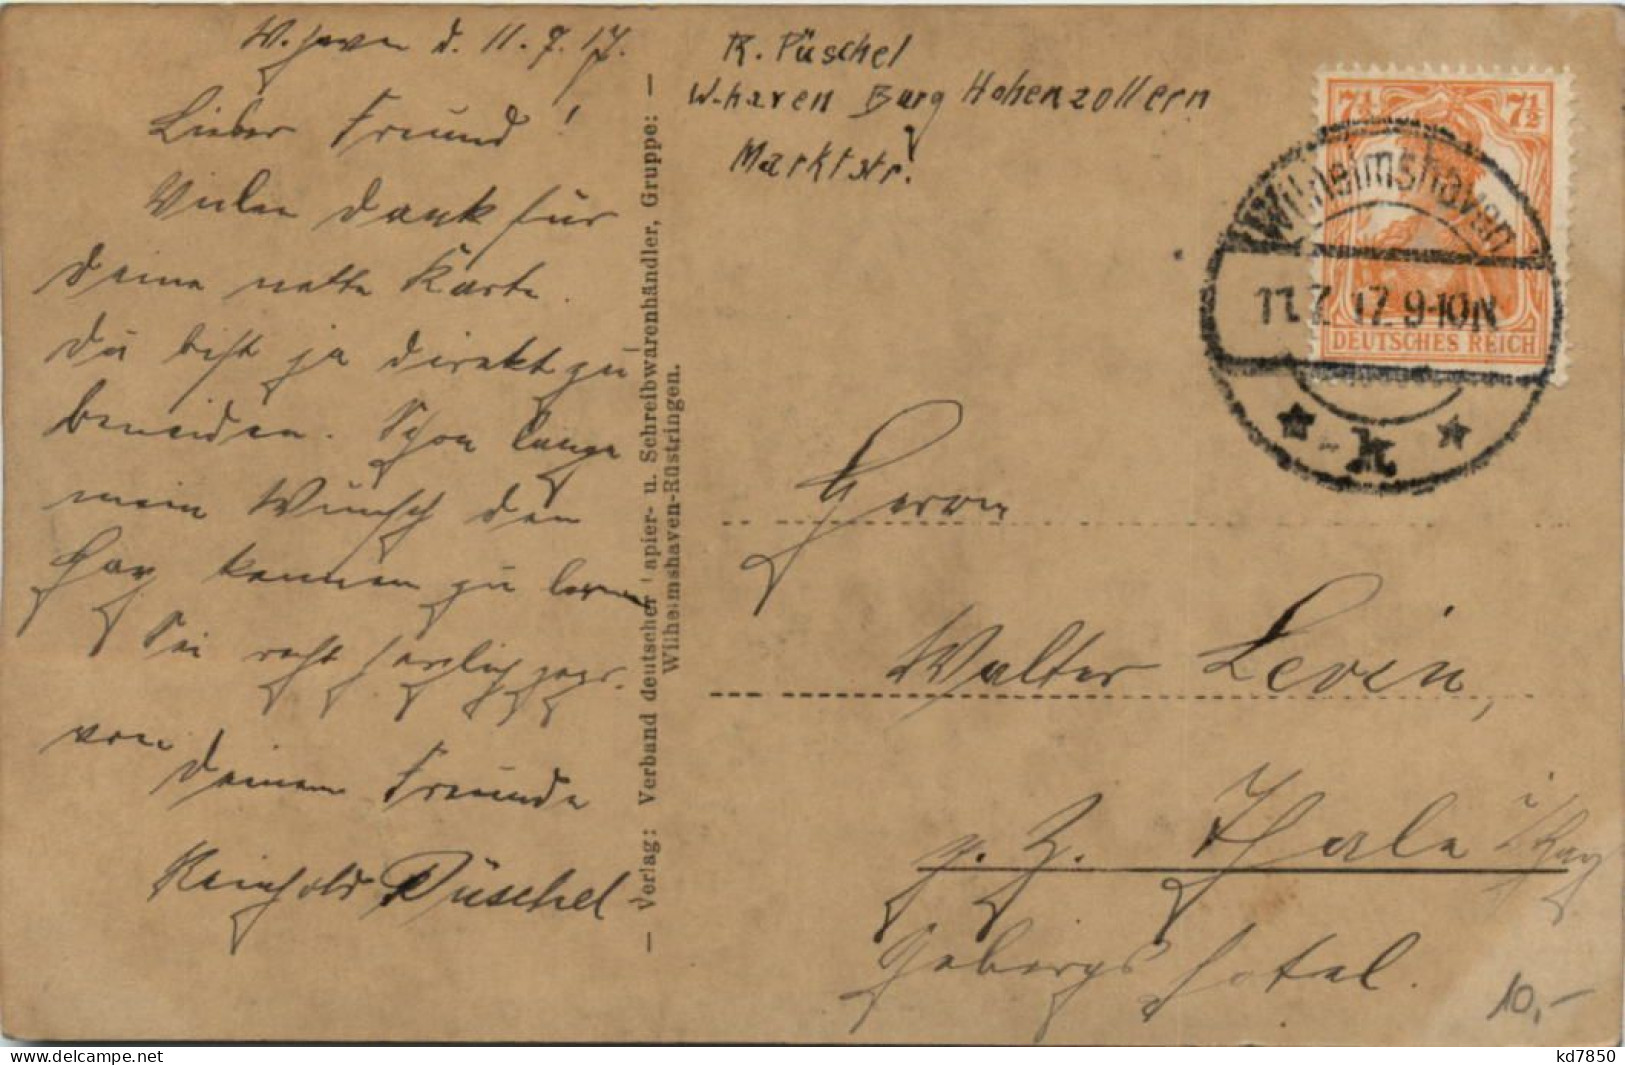 W. haven d. 11.7.17.
Lieber Freund!
Vielen Dank für
deine nette Karte.
Du bist ja direkt zu
beneiden. Schon lange
mein Wunsch den
Harz kennen zu lernen
Sei recht herzlich gegr.
von
deinem Freunde
Reinhold Püschel
— Verlag: Verband deutscher Papier- u. Schreibwarenhändler, Gruppe: —
Wilhelmshaven-Rüstringen.
R. Püschel
W-haven Burg Hohenzollern
Marktstr.
7½ 7½
DEUTSCHES REICH
Wilhelmshaven
11.7.17.9-10N
* k *
Herrn
Walter Levin,
z. Z. Thale i. Harz
Gebirgshotel.
10,-
kd7850
https://www.delcampe.net